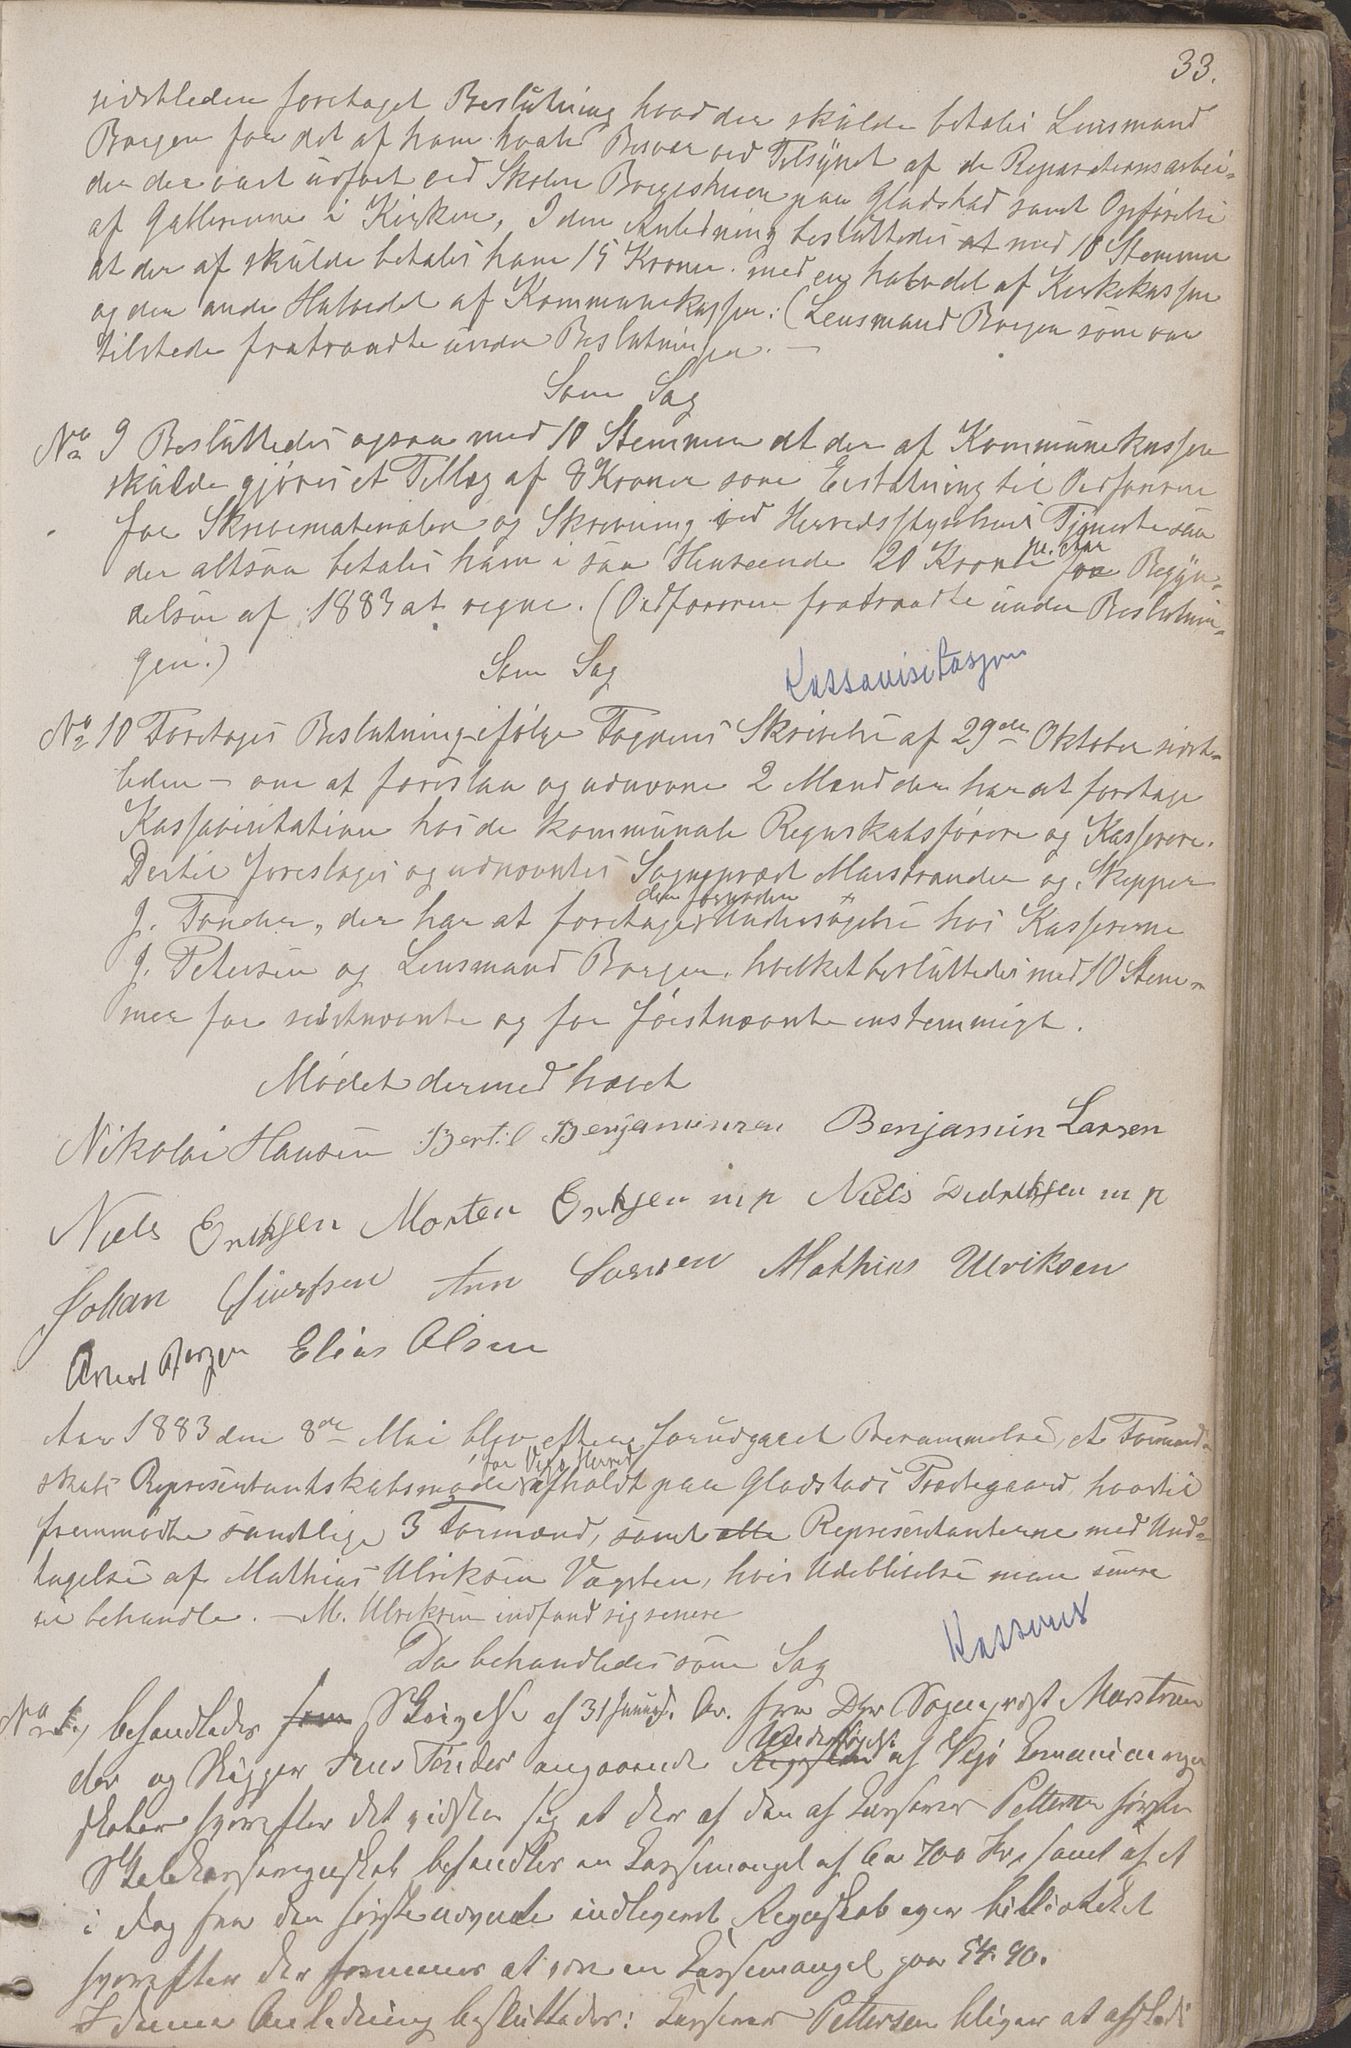 33.
sidstleden foretaget Beslutning hvad der skulde betales Lensmand
Borgen for det af ham havte Besvær ved Tilsynet af de Reparationsarbei-
der der vart udført ved Skolen Borgestuen paa Gladstad samt Opførelse
af Gallerierne i Kirken, I den Anledning besluttedes at med 10 Stemmer
at der af skulde betales ham 15 Kroner med en halvdel af Kirkekassen
og den anden Halvdel af Kommunekassen. (Lensmand Borgen som var
tilstede fratraadte under Beslutningen. —
Som Sag
No 9 Besluttedes ogsaa med 10 Stemmer at der af Kommunekassen
skulde gjøres et Tillæg af 8 Kroner som Erstatning til Ordføreren
for Skrivematerialer og Skrivning ved Herredsstyrelsens Tjeneste saa
der altsaa betales ham i saa Henseende 20 Kroner pr. Aar for Begyn-
delsen af 1883 at regne. (Ordføreren fratraadte under Beslutnin-
gen.)
Som Sag
Kassavisitasjon
No 10 Foretoges Beslutning ifølge Fogdens Skrivelse af 29de Oktober sidst-
leden – om at foreslaa og udnævne 2 Mænd der har at foretage
Kassavisitation hos de kommunale Regnskabsførere og Kasserere.
Dertil foresloges og udnævntes Sogneprest Marstrander og Skipper
J. Tønder, der har at foretage den fornødne Undersøgelse hos Kassererne
J. Petersen og Lensmand Borgen, hvilket besluttedes med 10 Stem-
mer for sidstnævnte og for førstnævnte enstemmigt.
Mødet dermed hævet
Nikolai Hansen Bertil Benjaminsen Benjamin Larsen
Niels Eriksen Morten Eriksen m p Niels Didriksen m p
Johan Sivertsen Arn Sørensen Mathias Ulriksen
Borgen Elias Olsen
Aar 1883 den 8de Mai blev efter forudgaaet Berammelse, et Formand-
skabs Representantskabsmøde for Vega Herred afholdt paa Gladstads Prestegaard, hvortil
fremmødte samtlige 3 Formænd, samt alle Representanterne med Und-
tagelse af Mathias Ulriksen Vægsten, hvis Udeblivelse man senere
vil behandle. — M. Ulriksen indfandt sig senere
Da behandledes som Sag
Kasserer
No 1, behandledes som Skrivelse af 31 Januar d. Av. fra Dhr Sogneprest Marstran
der og Skipper Jens Tønder angaaende Regnskab Undersøgelse af Vega Kommuneregn
skaber hvorefter det viste sig at der af den af Kasserer Pettersen førte
Skolekasseregnskab befandtes en Kassemangel af Ca 700 Kr, samt af et
i dag fra den førstenævnte indlegeret Regnskab over bibliotheket
hvorefter der fremmer at være en Kassemangel paa 54.90.
I denne Anledning besluttedes: Kasserer Pettersen bliver at afskedi